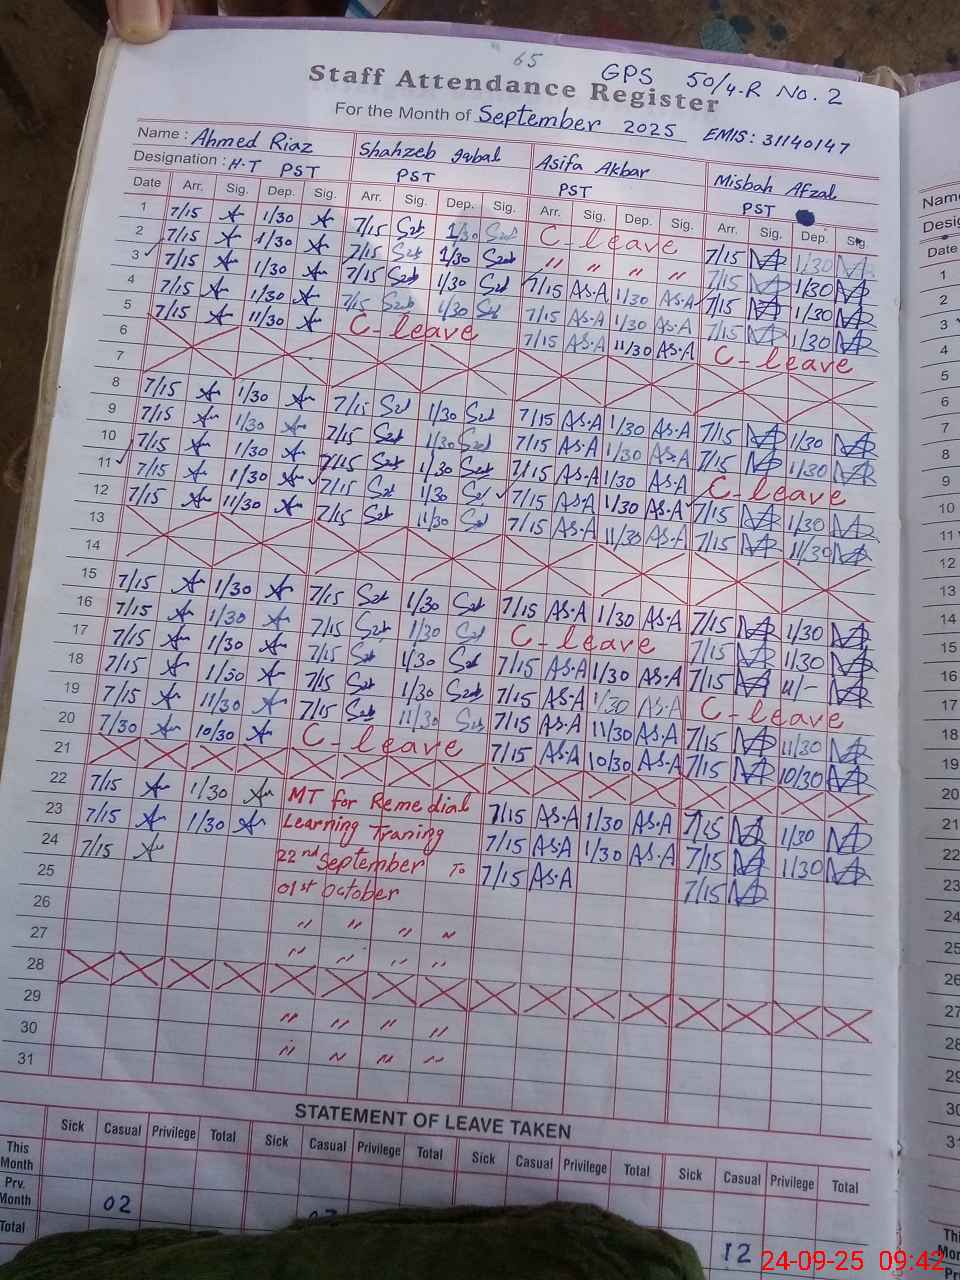 65
GPS 50/4-R No. 2
Staff Attendance Register
For the Month of September 2025 EMIS: 31140147
Name : Ahmed Riaz Shahzeb Iqbal Asifa Akbar Misbah Afzal
Designation : H.T PST PST PST PST
Date Arr. Sig. Dep. Sig. Arr. Sig. Dep. Sig. Arr. Sig. Dep. Sig. Arr. Sig. Dep. Sig.
1 7/15 1/30 7/15 1/30 C-leave 7/15 1/30
2 7/15 1/30 7/15 1/30 " " " " 7/15 1/30
3 7/15 1/30 7/15 1/30 7/15 AS.A 1/30 AS.A 7/15 1/30
4 7/15 1/30 7/15 1/30 7/15 AS.A 1/30 AS.A 7/15 1/30
5 7/15 11/30 C-leave 7/15 AS.A 11/30 AS.A C-leave
6
7
8 7/15 1/30 7/15 1/30 7/15 AS.A 1/30 AS.A 7/15 1/30
9 7/15 1/30 7/15 1/30 7/15 AS.A 1/30 AS.A 7/15 1/30
10 7/15 1/30 7/15 1/30 7/15 AS.A 1/30 AS.A C-leave
11 7/15 1/30 7/15 1/30 7/15 AS.A 1/30 AS.A 7/15 1/30
12 7/15 11/30 7/15 11/30 7/15 AS.A 11/30 AS.A 7/15 11/30
13
14
15 7/15 1/30 7/15 1/30 7/15 AS.A 1/30 AS.A 7/15 1/30
16 7/15 1/30 7/15 1/30 C-leave 7/15 1/30
17 7/15 1/30 7/15 1/30 7/15 AS.A 1/30 AS.A 7/15 11/-
18 7/15 1/30 7/15 1/30 7/15 AS.A 1/30 AS.A C-leave
19 7/15 11/30 7/15 11/30 7/15 AS.A 11/30 AS.A 7/15 11/30
20 7/30 10/30 C-leave 7/15 AS.A 10/30 AS.A 7/15 10/30
21
22 7/15 1/30 MT for Remedial 7/15 AS.A 1/30 AS.A 7/15 1/30
23 7/15 1/30 Learning Traning 7/15 AS.A 1/30 AS.A 7/15 1/30
24 7/15 22nd September To 7/15 AS.A 7/15
25 01st October
26 " " " "
27 " " " "
28
29 " " " "
30 " " " "
31
STATEMENT OF LEAVE TAKEN
Sick Casual Privilege Total Sick Casual Privilege Total Sick Casual Privilege Total Sick Casual Privilege Total
This Month
Prv. Month 02
Total 12
Name
Desig
Date
1
2
3
4
5
6
7
8
9
10
11
12
13
14
15
16
17
18
19
20
21
22
23
24
25
26
27
28
29
30
24-09-25 09:42